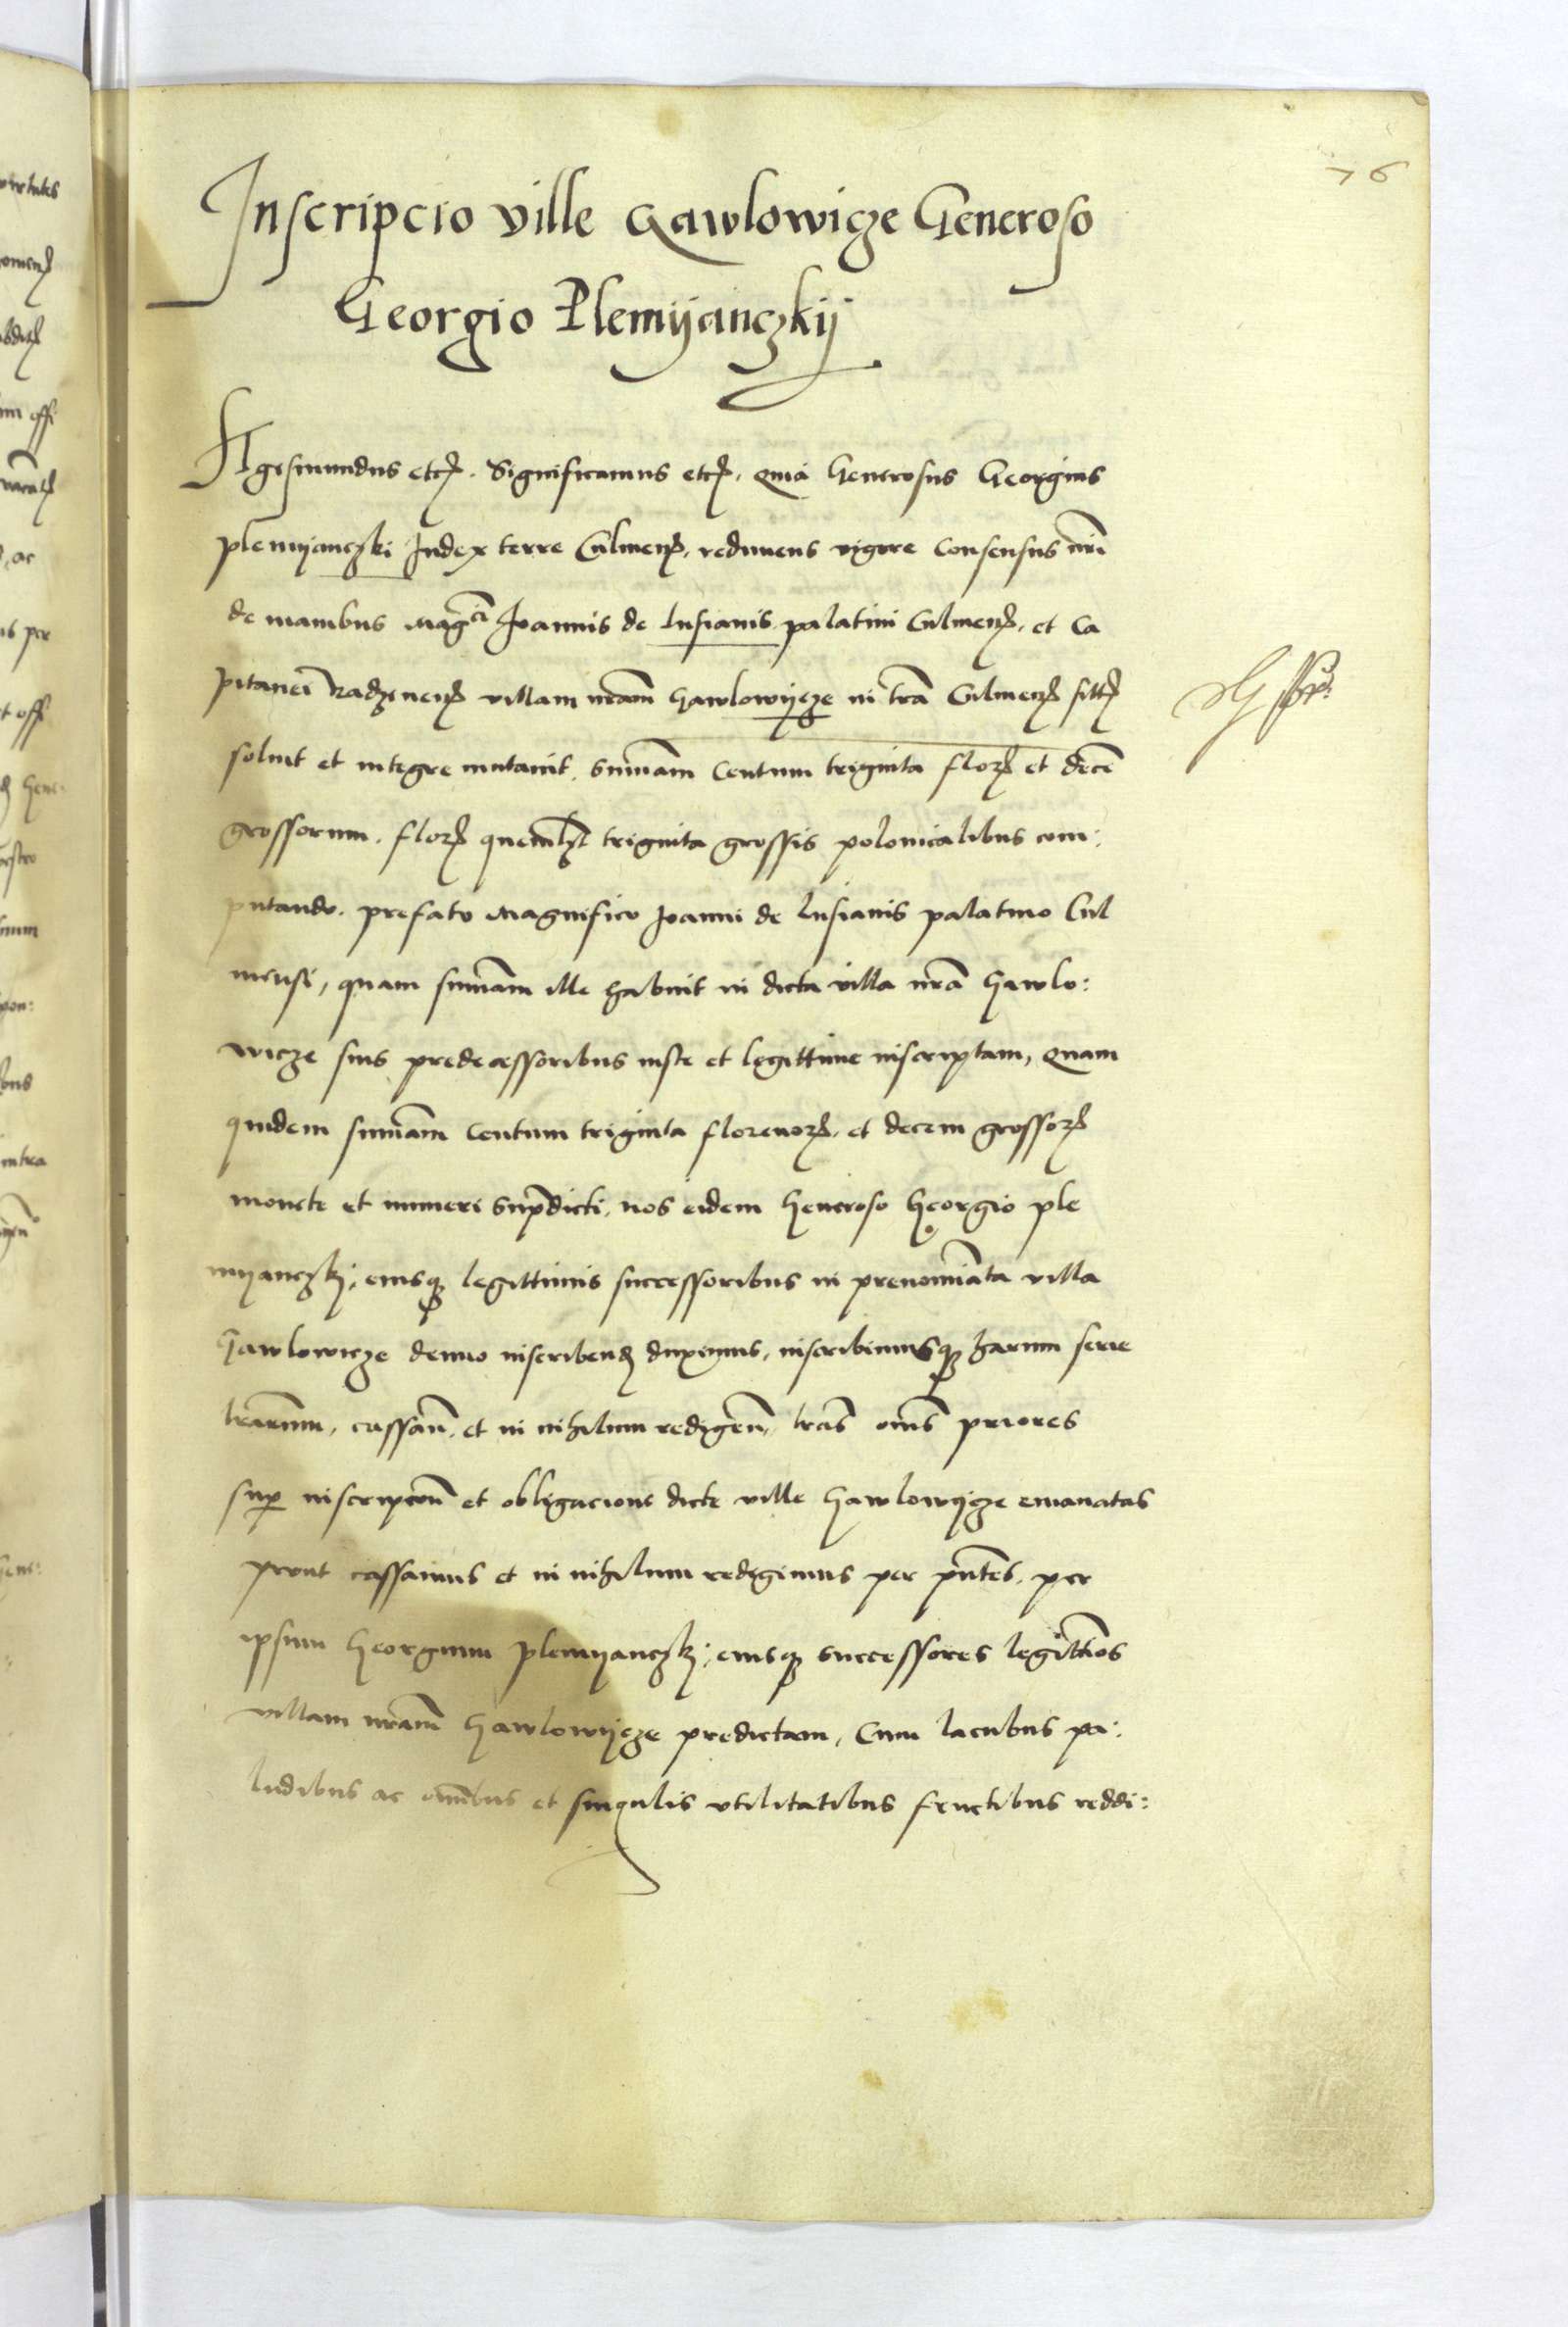 76
Inscripcio ville Gawlowicze Generoso
Georgio Plemijanczkij
Sigismundus etc. Significamus etc. quia Generosus Georgius
plemijanczki Iudex terre Culmen. redimens vigore consensus nri
de manibus magci Joannis de lusianis palatini Culmen. et Ca
pitanei Radzinen. villam nram Gawlowijcze in tra Culmen. sitt.
soluit et integre mutauit summam centum triginta flor. et dece
grossorum. flor. quemlbt triginta grossis polonicalibus com:
putando. prefato magnifico Joanni de lusianis palatino Cul
mensi, quam summam ille habuit in dicta villa nra Gawlo:
wicze suis predecessoribus iuste et legittime inscriptam, quam
quidem summam centum triginta florenor. et decem grossor.
monete et numeri supradicti, nos eidem Generoso Georgio ple
mijanczki, eiusq legittimis successoribus in prenominata villa
Gawlowicze denuo inscribend duximus, inscribimusq harum serie
lrarum, cassan. et in nihilum redigen. lras oms priores
sup inscripcon et obligacione dicte ville Gawlowijcze emanatas
prout cassamus et in nihilum redigimus per pntes, per
ipsum Georgium plemijanczki, eiusq successores legittios
villam nram Gawlowijcze predictam, Cum lacubus pa:
ludibus ac omibus et singulis vtilitatibus fructibus reddi: